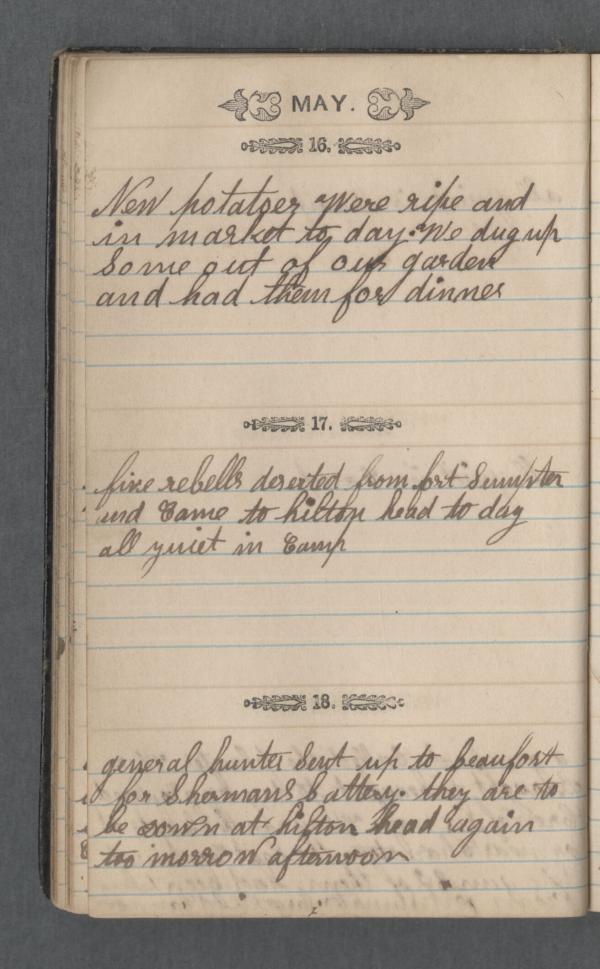 MAY.
16.
New potatoes Were ripe and
in market to day. We dug up
Some out of our garden
and had them for dinner
17.
five rebells deserted from fort Sumpter
and Came to hilton head to day
all quiet in Camp
18.
general hunter Sent up to beaufort
for Shermans battery. they are to
be down at hilton head again
too morrow afternoon